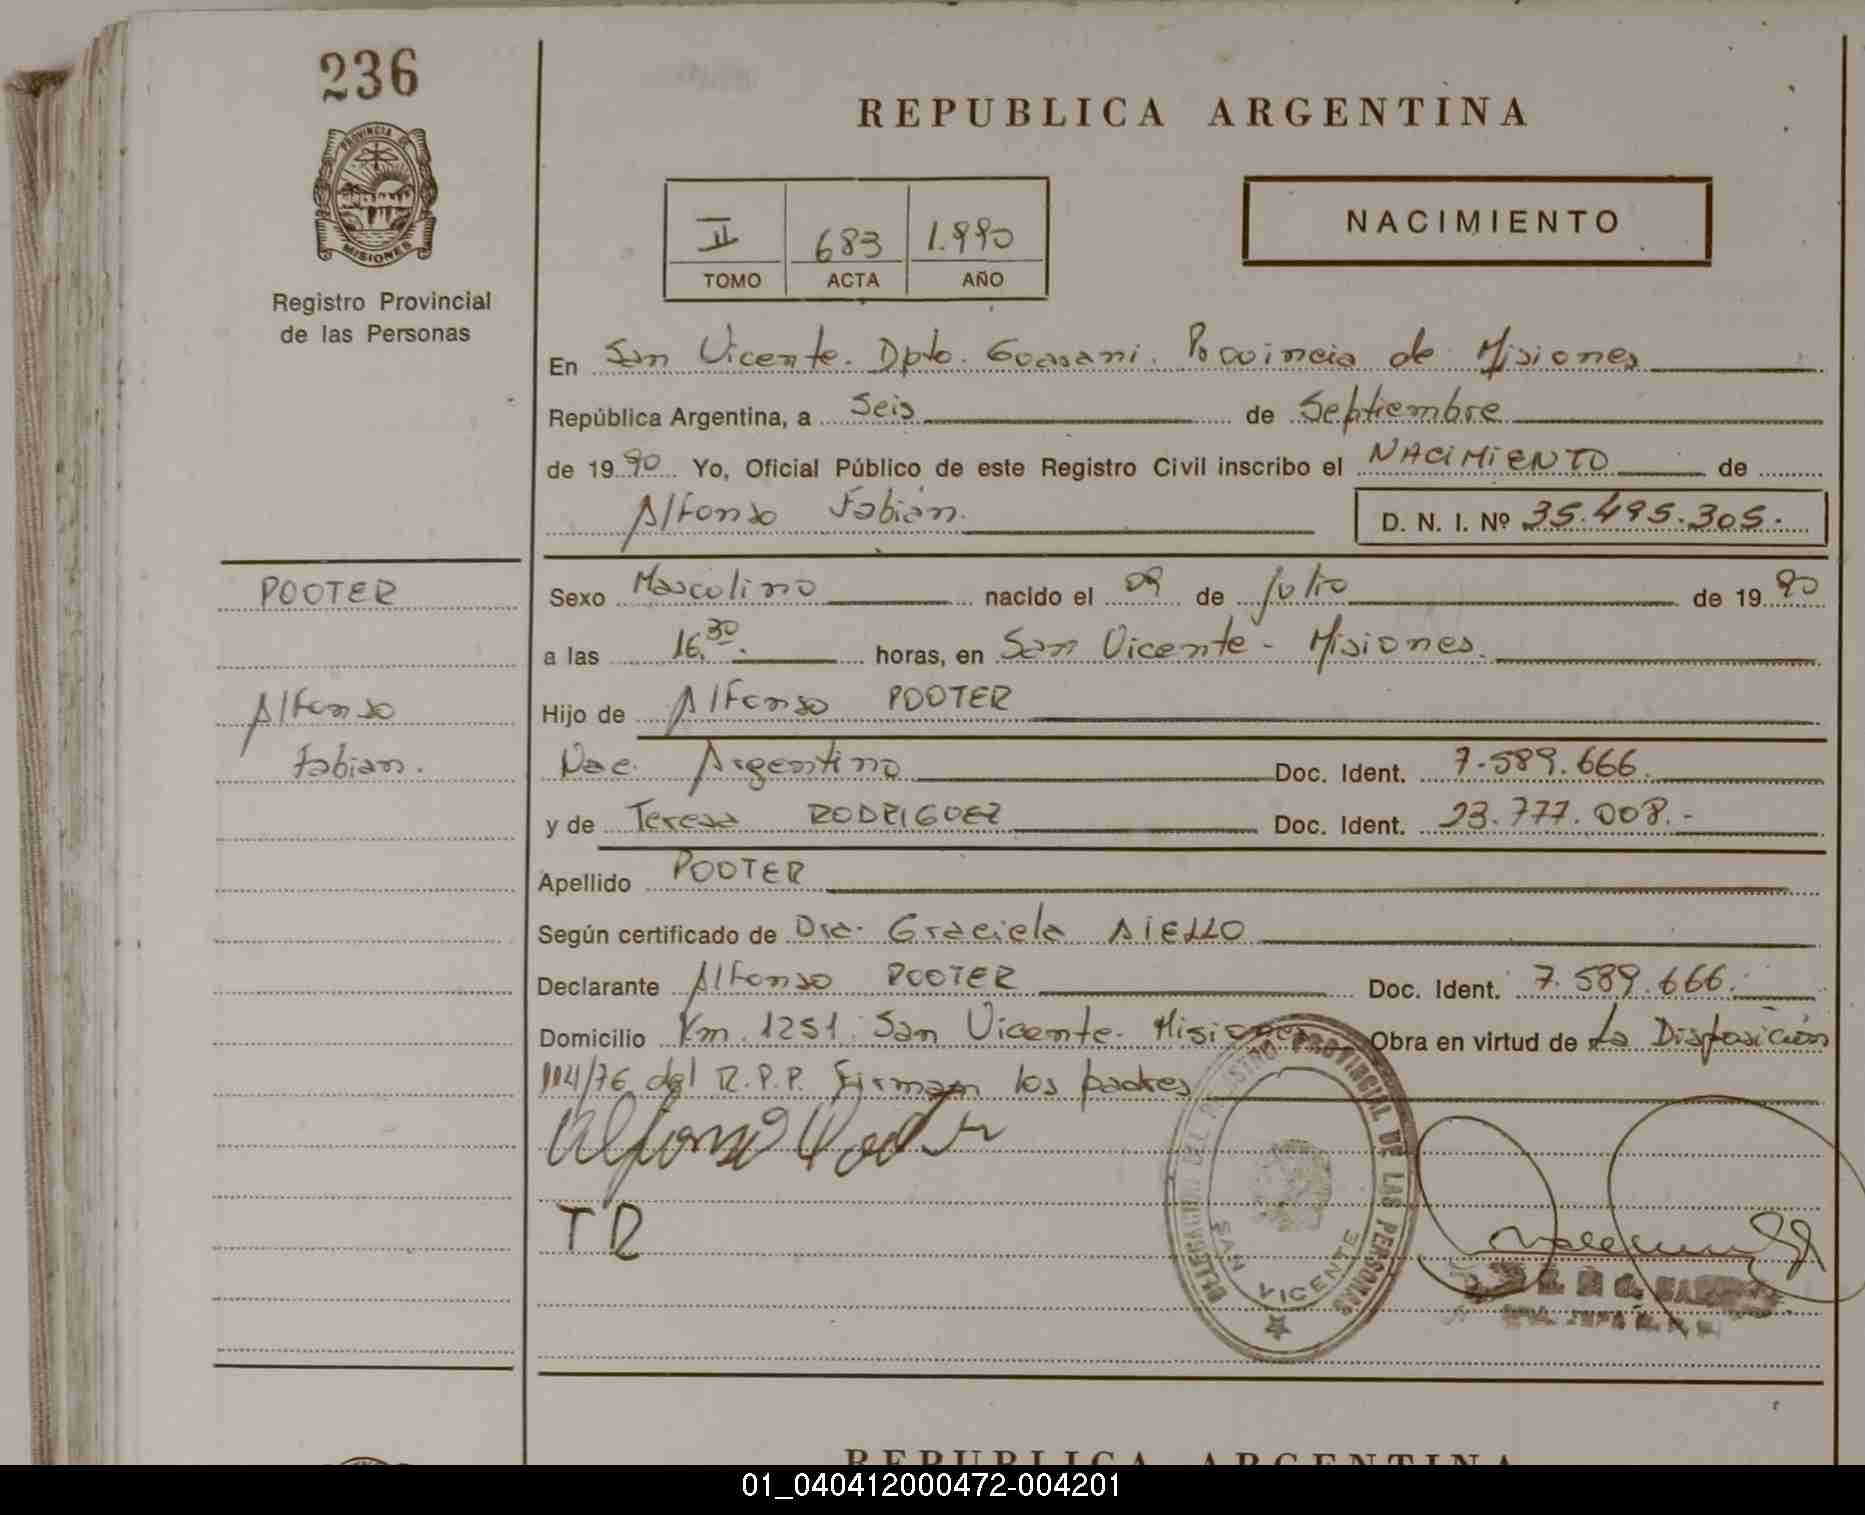 236
PROVINCIA DE
MISIONES
Registro Provincial
de las Personas
REPUBLICA ARGENTINA
II 683 1.990
TOMO ACTA AÑO
NACIMIENTO
En San Vicente. Dpto. Guarani. Provincia de Misiones
República Argentina, a Seis de Septiembre
de 1990 Yo, Oficial Público de este Registro Civil inscribo el NACIMIENTO de
Alfonso Fabián.
D. N. I. Nº 35.495.305.
POOTER
Alfonso
Fabian.
Sexo Masculino nacido el 09 de Julio de 1990
a las 16,30. horas, en San Vicente - Misiones.
Hijo de Alfonso POOTER
Nac. Argentino Doc. Ident. 7.589.666.
y de Teresa RODRIGUEZ Doc. Ident. 23.777.008.-
Apellido POOTER
Según certificado de Dra. Graciela AIELLO
Declarante Alfonso POOTER Doc. Ident. 7.589.666.
Domicilio Km. 1251. San Vicente. Misiones Obra en virtud de La Disposición
114/76 del R.P.P. Firman los padres
Alfonso Pooter
TR
DELEGACION DEL REGISTRO PROVINCIAL DE LAS PERSONAS
SAN VICENTE
REPUBLICA ARGENTINA
01_040412000472-004201